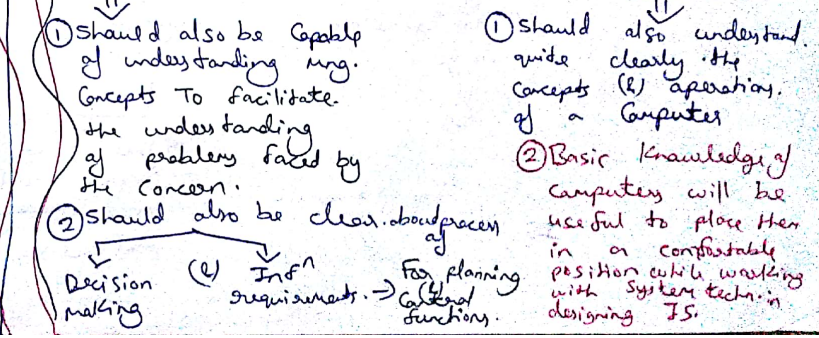 ① Should also be Capable
of understanding mng.
Concepts To facilitate
the understanding
of problems faced by
the Concern.
② Should also be clear about process
of
Decision
making
(&) Infⁿ
requirements. → For planning
(&)
Control
functions.
① Should also understand
quite clearly the
Concepts (&) operations
of a Computer
② Basic Knowledge of
computers will be
useful to place them
in a comfortable
position while working
with System techn. in
designing IS.